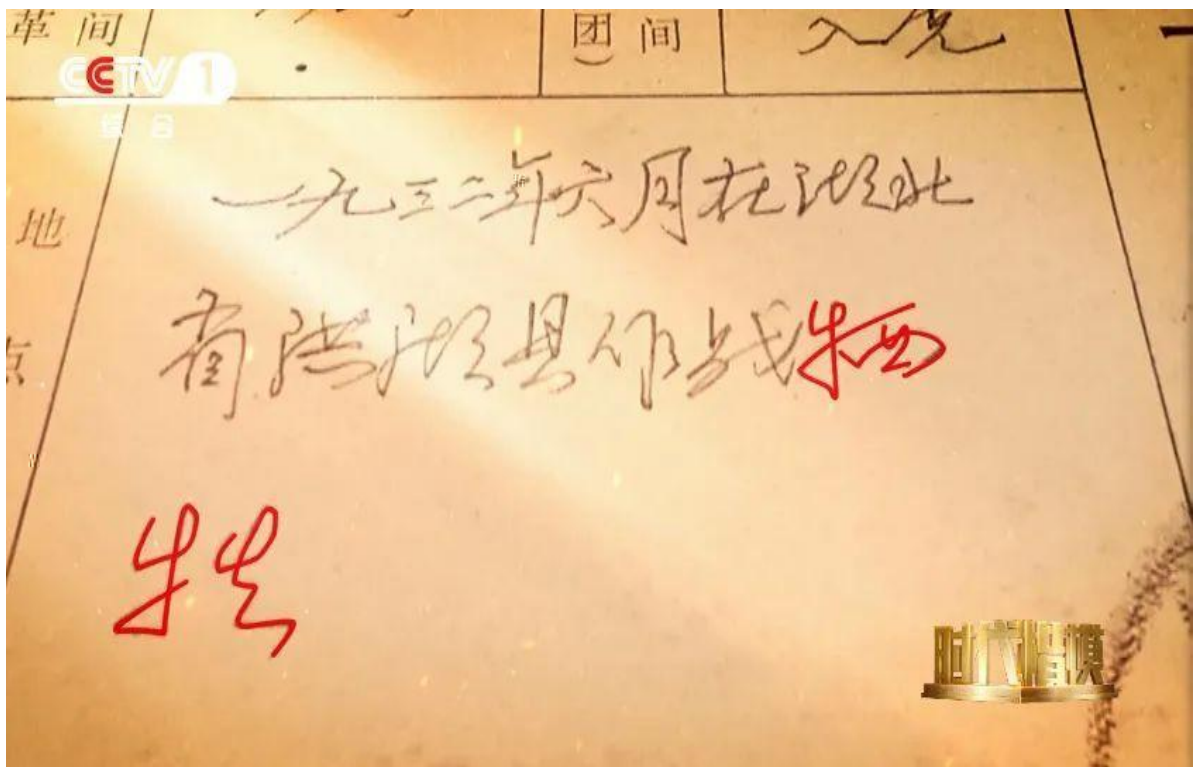 革 间
团 间
)
入党
CCTV 1
综合
地
一九三二年六月在湖北
省洪湖县作战牺
点
牲
时代楷模